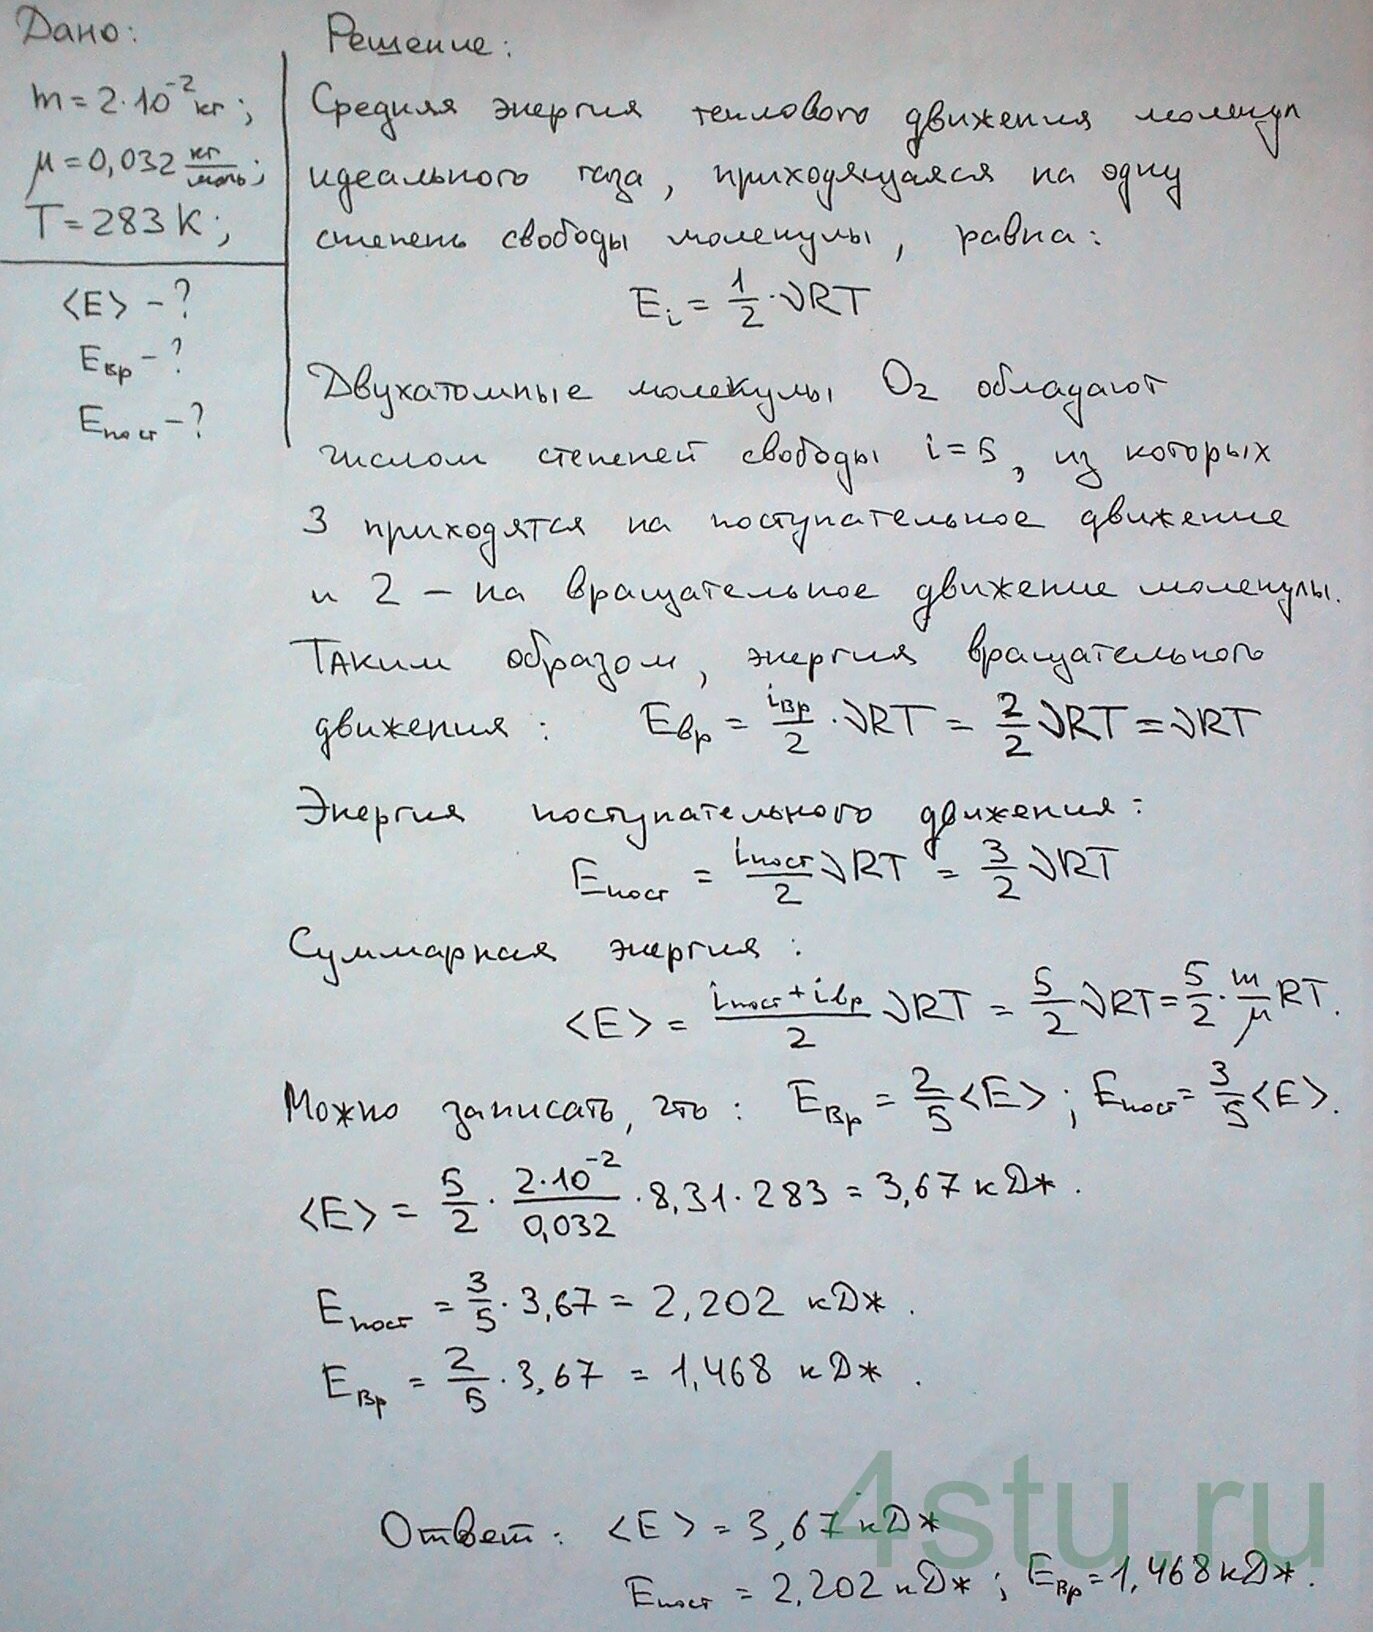 Дано:
m = 2·10⁻² кг;
μ = 0,032 кг/моль;
T = 283 К;
<E> – ?
Eвр – ?
Eпост – ?
Решение:
Средняя энергия теплового движения молекул
идеального газа, приходящаяся на одну
степень свободы молекулы, равна:
Ei = 1/2 · νRT
Двухатомные молекулы O₂ обладают
числом степеней свободы i = 5, из которых
3 приходятся на поступательное движение
и 2 – на вращательное движение молекулы.
Таким образом, энергия вращательного
движения: Eвр = iвр/2 · νRT = 2/2 νRT = νRT
Энергия поступательного движения:
Eпост = iпост/2 νRT = 3/2 νRT
Суммарная энергия:
<E> = (iпост + iвр)/2 νRT = 5/2 νRT = 5/2 · m/μ RT.
Можно записать, что: Eвр = 2/5 <E>; Eпост = 3/5 <E>.
<E> = 5/2 · 2·10⁻²/0,032 · 8,31 · 283 = 3,67 кДж.
Eпост = 3/5 · 3,67 = 2,202 кДж.
Eвр = 2/5 · 3,67 = 1,468 кДж.
Ответ: <E> = 3,67 кДж
Eпост = 2,202 кДж; Eвр = 1,468 кДж.
4stu.ru